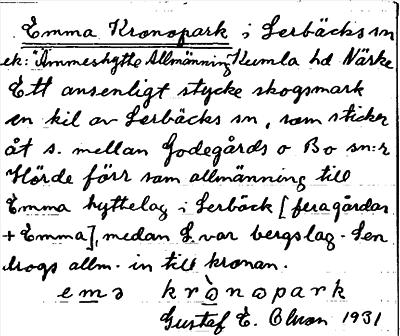 Emma Kronopark i Lerbäcks sn
ek: "Ämmeshytte Allmänning" Kumla hd Närke
Ett ansenligt stycke skogsmark
en kil av Lerbäcks sn, som sticker
åt s. mellan Godegårds o Bo sn:r
Hörde förr som allmänning till
Emma hyttelag i Lerbäck [feragårdar
+ Emma], medan L. var bergslag. Sen
drogs allm. in till kronan.
emə krònəpark
Gustaf E. Olsson 1931